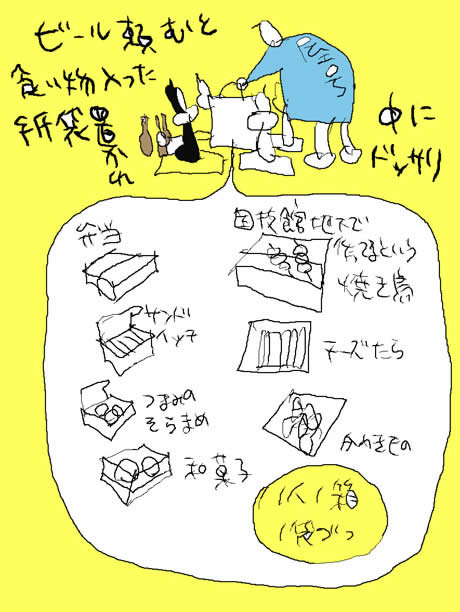 ビール頼むと
食い物入った
紙袋置
かれ
中に
ドッサリ
弁当
国技館地下で
作ってるという
焼き鳥
サンド
イッチ
チーズたら
つまみの
そらまめ
和菓子
かわきもの
1人1箱
1袋づつ